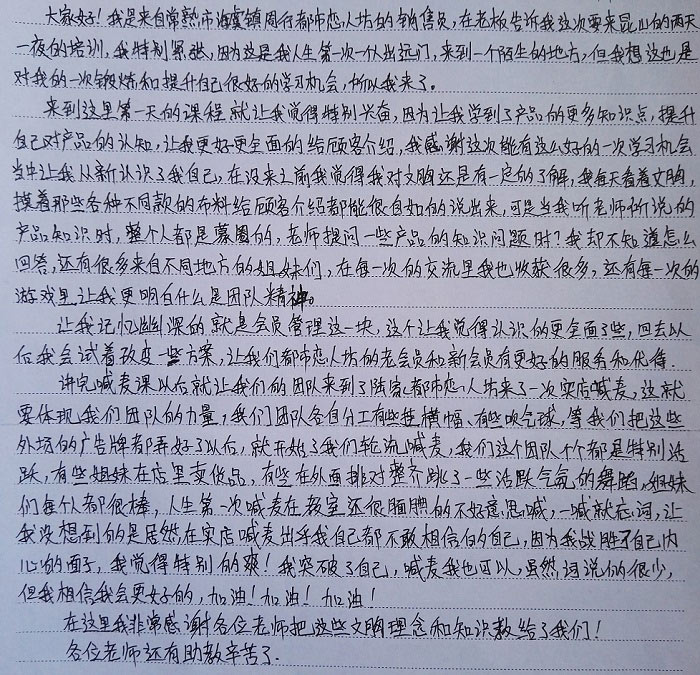 大家好！我是来自常熟市海虞镇周行都市恋人坊的销售员，在老板告诉我这次要来昆山的两天
一夜的培训，我特别紧张，因为这是我人生第一次一个人出远门，来到一个陌生的地方，但我想这也是
对我的一次锻炼和提升自己很好的学习机会，所以我来了。
来到这里第一天的课程就让我觉得特别兴奋，因为让我学到了产品的更多知识点，提升
自己对产品的认知，让我更好更全面的给顾客介绍，我感谢这次能有这么好的一次学习机会
当中让我从新认识了我自己，在没来之前我觉得我对文胸还是有一定的了解，我每天看着文胸，
摸着那些各种不同款的布料给顾客介绍都能很自如的说出来，可是当我听老师所说的
产品知识时，整个人都是蒙圈的，老师提问一些产品的知识问题时？我却不知道怎么
回答，还有很多来自不同地方的姐妹们，在每一次的交流里我也收获很多，还有每一次的
游戏里让我更明白什么是团队精神。
让我记忆幽深的就是会员管理这一块，这个让我觉得认识的更全面了些，回去以
后我会试着改变一些方案，让我们都市恋人坊的老会员和新会员有更好的服务和优待．
讲完喊麦课以后就让我们的团队来到了陆家都市恋人坊来了一次实店喊麦，这就
要体现我们团队的力量，我们团队各自分工有些挂横幅、有些吹气球，等我们把这些
外场的广告牌都弄好了以后，就开始了我们轮流喊麦，我们这个团队个个都是特别活
跃，有些姐妹在店里卖货品，有些在外面排对整齐跳了一些活跃气氛的舞蹈，姐妹
们每个人都很棒，人生第一次喊麦在教室还很腼腆的不好意思喊，一喊就忘词，让
我没想到的是居然在实店喊麦出乎我自己都不敢相信的自己，因为我战胜了自己内
心的面子，我觉得特别的爽！我突破了自己，喊麦我也可以，虽然词说的很少，
但我相信我会更好的，加油！加油！加油！
在这里我非常感谢各位老师把这些文胸理念和知识教给了我们！
各位老师还有助教辛苦了．